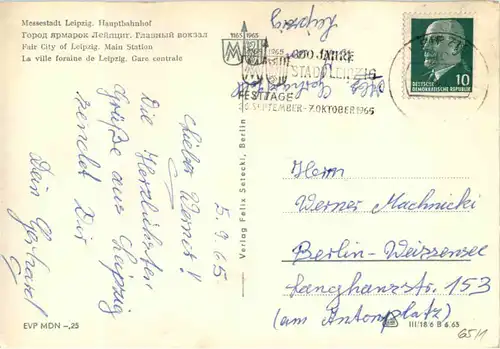 Messestadt Leipzig. Hauptbahnhof
Город ярмарок Лейпциг. Главный вокзал
Fair City of Leipzig. Main Station
La ville foraine de Leipzig. Gare centrale
1165 1965
800 JAHRE
STADT LEIPZIG
FESTTAGE
SEPTEMBER-7.OKTOBER 1965
10
DEUTSCHE
DEMOKRATISCHE REPUBLIK
Leipzig
5.9.65
Lieber Werner!
Die Herzlichsten
Grüße aus Leipzig
sendet Dir
Dein Gerhard
Verlag Felix Setecki, Berlin
Herrn
Werner Machnicki
Berlin-Weissensee
Langhansstr. 153
(am Antonplatz)
EVP MDN -,25
III/18 6 B 6.65
65/1